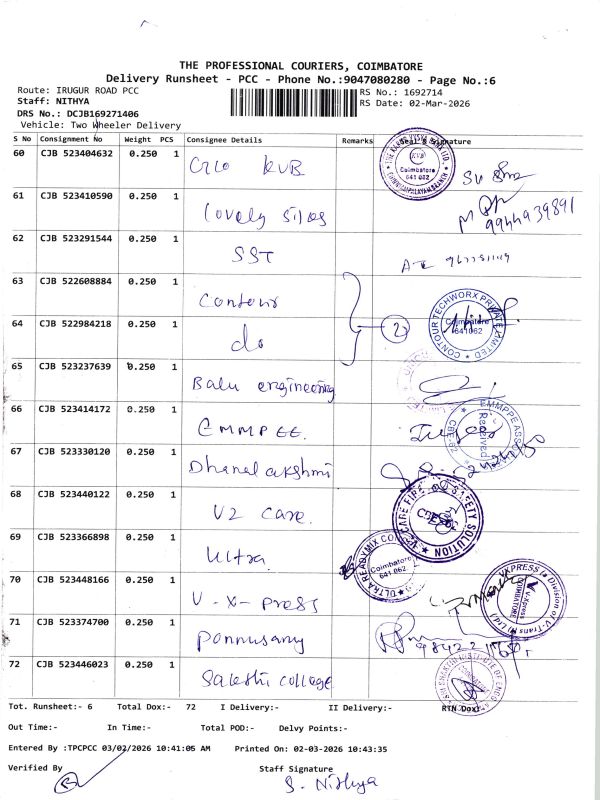 THE PROFESSIONAL COURIERS, COIMBATORE
Delivery Runsheet - PCC - Phone No.:9047080280 - Page No.:6
Route: IRUGUR ROAD PCC
Staff: NITHYA
DRS No.: DCJB169271406
Vehicle: Two Wheeler Delivery
RS No.: 1692714
RS Date: 02-Mar-2026
S No Consignment No Weight PCS Consignee Details Remarks Seal & Signature
60 CJB 523404632 0.250 1 KVB
KVB Coimbatore 641 062
61 CJB 523410590 0.250 1 lovely
9944939891
62 CJB 523291544 0.250 1 SST
63 CJB 522608884 0.250 1 Contour
64 CJB 522984218 0.250 1 do
2
CONTOUR TECHWORX PRIVATE LIMITED Coimbatore 641062
65 CJB 523237639 0.250 1 Balu engineering
66 CJB 523414172 0.250 1 EMMPEE.
Received
67 CJB 523330120 0.250 1 Dhanalakshmi
68 CJB 523440122 0.250 1 V2 Care.
V2 CARE FIRE SAFETY SOLUTION
69 CJB 523366898 0.250 1 Ultra.
ULTRA READYMIX Coimbatore 641 062
70 CJB 523448166 0.250 1 V-X-press
71 CJB 523374700 0.250 1 Ponnusamy
72 CJB 523446023 0.250 1 Sakthi college
Tot. Runsheet:- 6 Total Dox:- 72 I Delivery:- II Delivery:- RTN Dox:
Out Time:- In Time:- Total POD:- Delvy Points:-
Entered By :TPCPCC 03/02/2026 10:41:05 AM Printed On: 02-03-2026 10:43:35
Verified By Staff Signature
S. Nithya